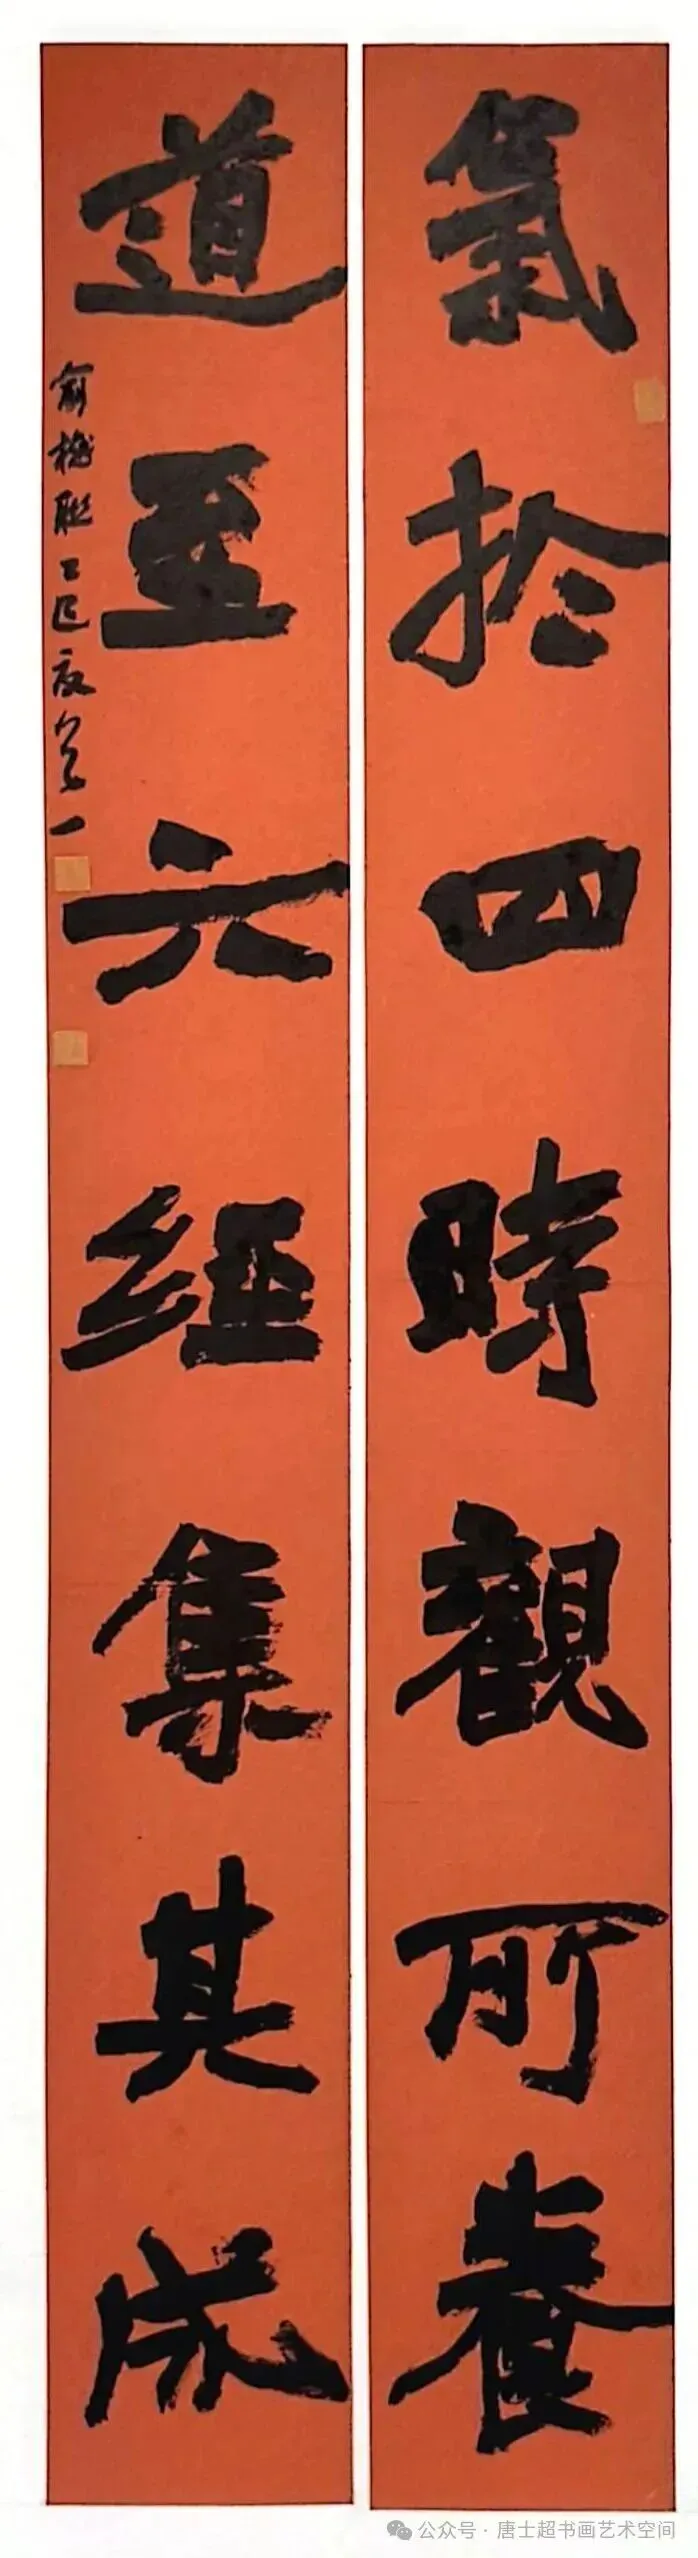 氣於四時觀所養
道至六經集其成
俞樾聯乙巳夏
一
公众号·唐士超书画艺术空间